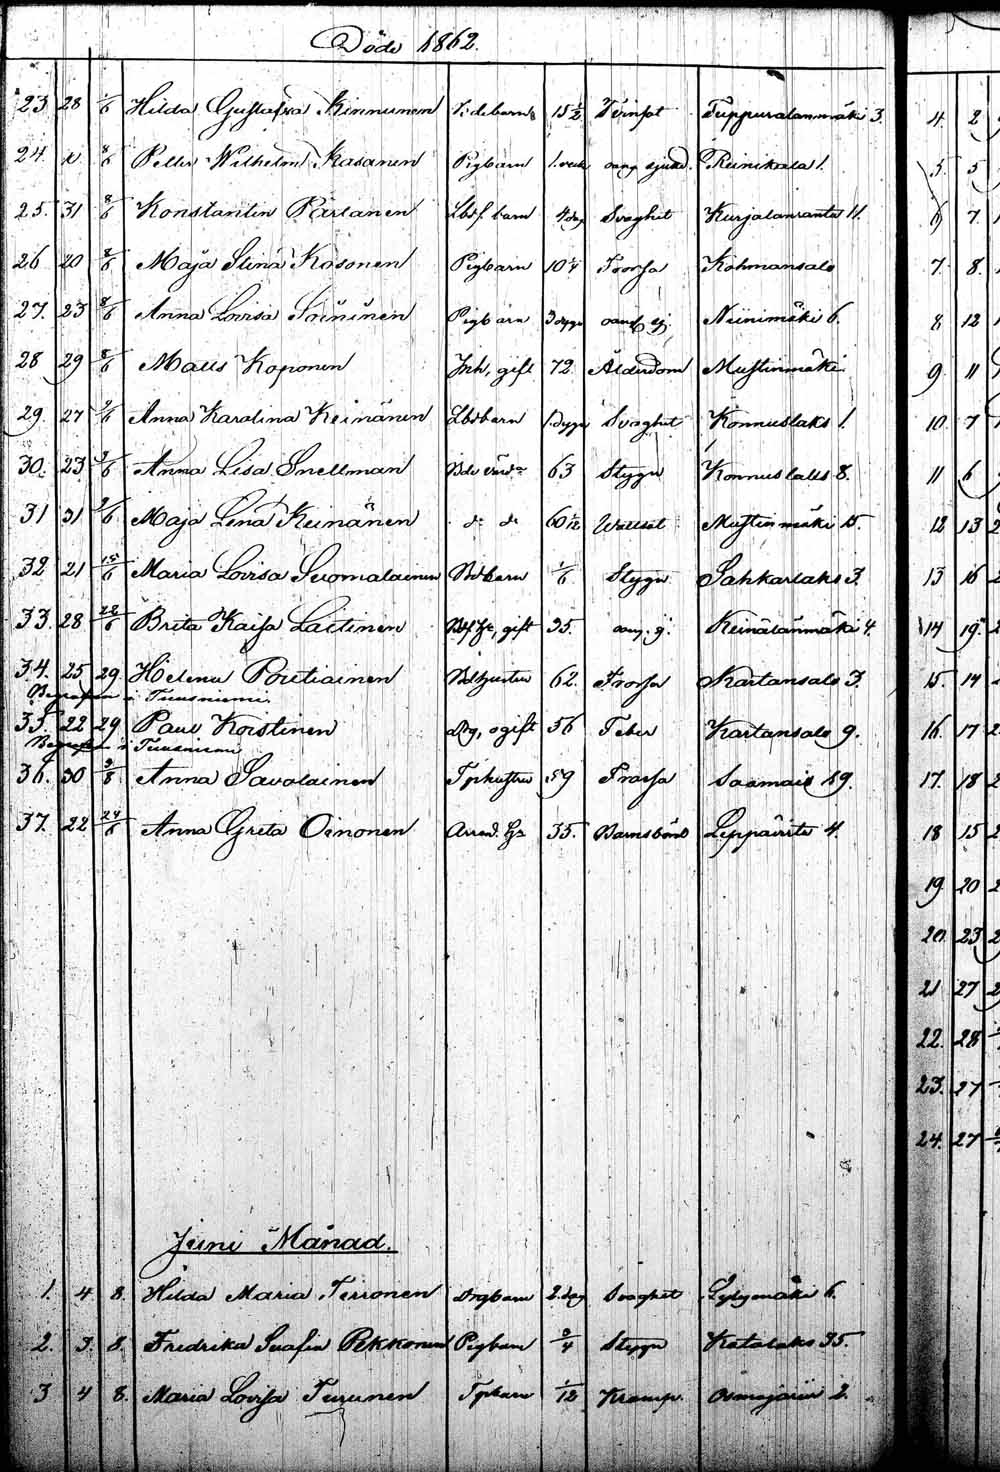 Döde 1862.
23 28 1/6 Hilda Gustafva Kinnunen 15 1/2 Tvinsot Tuppuralanmäki 3.
24. 8/6 Petter Wilhelm Kasanen Pigbarn 1. veck oang sjukd. Reinikkala 1.
25. 31 8/6 Konstantin Partanen Lbdf barn 4 dag Svaghet Kurjalanranta 11.
26 20 8/6 Maja Stina Kosonen Pigbarn 10 1/4 Frossa Kohmansalo
27. 23 8/6 Anna Lovisa Soininen Pigbarn 3 dygn oang sj. Niinimäki 6.
28 29 8/6 Matts Koponen Inh, gift 72. Ålderdom Mustinmäki
29. 27 9/6 Anna Karolina Keinänen Lbdbarn 1 dygn Svaghet Konnuslaks 1.
30. 23 9/6 Anna Lisa Snellman 63 Stygn Konnuslaks 8.
31 31 9/6 Maja Lena Keinänen d:o d:o 60 1/12 Wattsot Mustinmäki 15.
32 21 15/6 Maria Lovisa Suomalainen Bdbarn 1/6 Stygn Sahkarlaks 3.
33. 28 22/6 Brita Kaisa Laitinen gift 35. oang. sj. Keinälänmäki 4.
34. 25 29. Helena Poutiainen Bdhustru 62. Frossa Kartansalo 3.
Begrafven i Tuusniemi
35. 22 29 Paul Koistinen Drg, ogift 56 Feber Kartansalo 9.
Begrafven i Tuusniemi
36. 30 3/8 Anna Savolainen Tphustru 59 Frossa Saamais 19.
37. 22 24/6 Anna Greta Oinonen Arrend. Hu 35. Barnsbörd Leppävirta 4.
Juni Månad.
1. 4 8. Hilda Maria Tirronen Drgbarn 2. dag Svaghet 6.
2. 3. 8. Fredrika Serafia Pekkonen Pigbarn 3/4 Stygn Kotalaks 35.
3 4 8. Maria Lovisa Turunen Tpbarn 1/12 Kramp. Osmajärvi 2.
4. 2
5 5
6 7.
7. 8.
8 12
9. 11
10. 7
11 6
12 13 2
13 16 2
14 19. 2
15. 14
16. 17 2
17. 18 2
18 15 2
19. 20 2
20. 23 2
21 27 2
22. 28
23. 27
24. 27